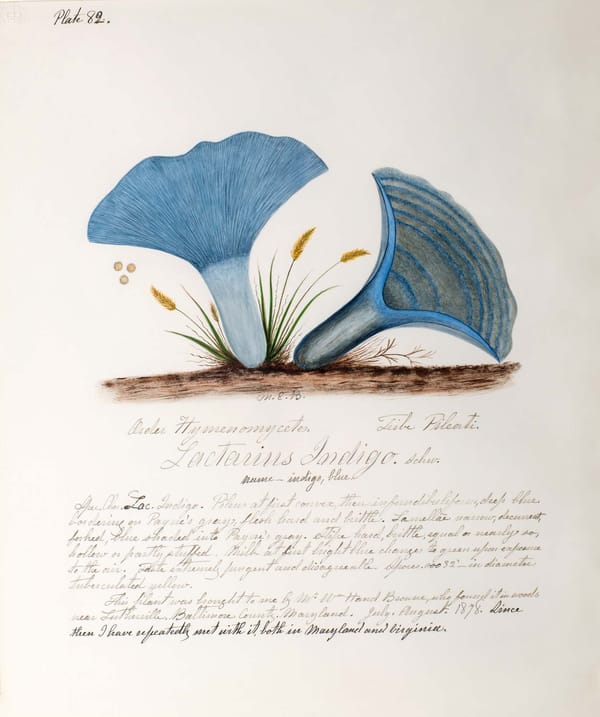 Plate 82.
M.E.B.
Order Hymenomycetes. Tribe Pileati.
Lactarius Indigo. Schw.
name—indigo, blue.
Spe. Ch. Lac. Indigo. Pileus at first convex, then infundibuliform, deep blue
bordering on Payne's gray; flesh hard and brittle. Lamellae narrow, decurrent,
forked, blue shaded into Payne's gray. Stipe hard, brittle, equal or nearly so,
hollow or partly stuffed. Milk at first bright blue changes to green upon exposure
to the air. Taste extremely pungent and disagreeable. Spores .00032 in diameter
tuberculated yellow.
This plant was brought to me by Mr. Wm Hand Browne, who found it in woods
near Lutherville, Baltimore County, Maryland. July. August. 1878. Since
then I have repeatedly met with it, both in Maryland and Virginia.